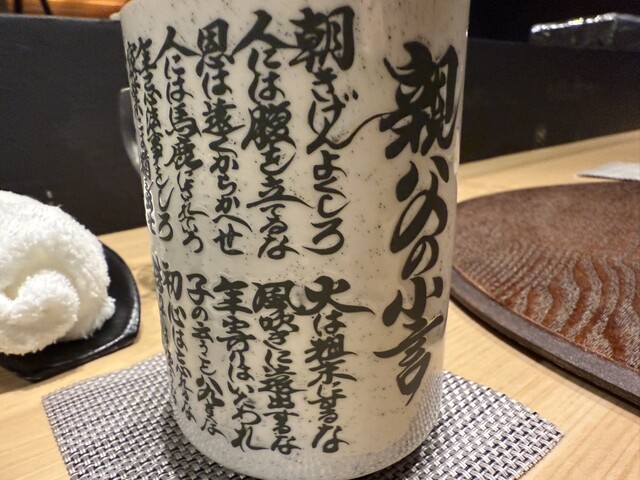 親父の小言
朝きげんよくしろ
人には腹を立てるな
恩は遠くからかへせ
人には馬鹿にされていろ
年忌法事をしろ
火は粗末にするな
風吹きに遠出するな
年寄りはいたわれ
子の言うこと八九きくな
初心は忘れるな